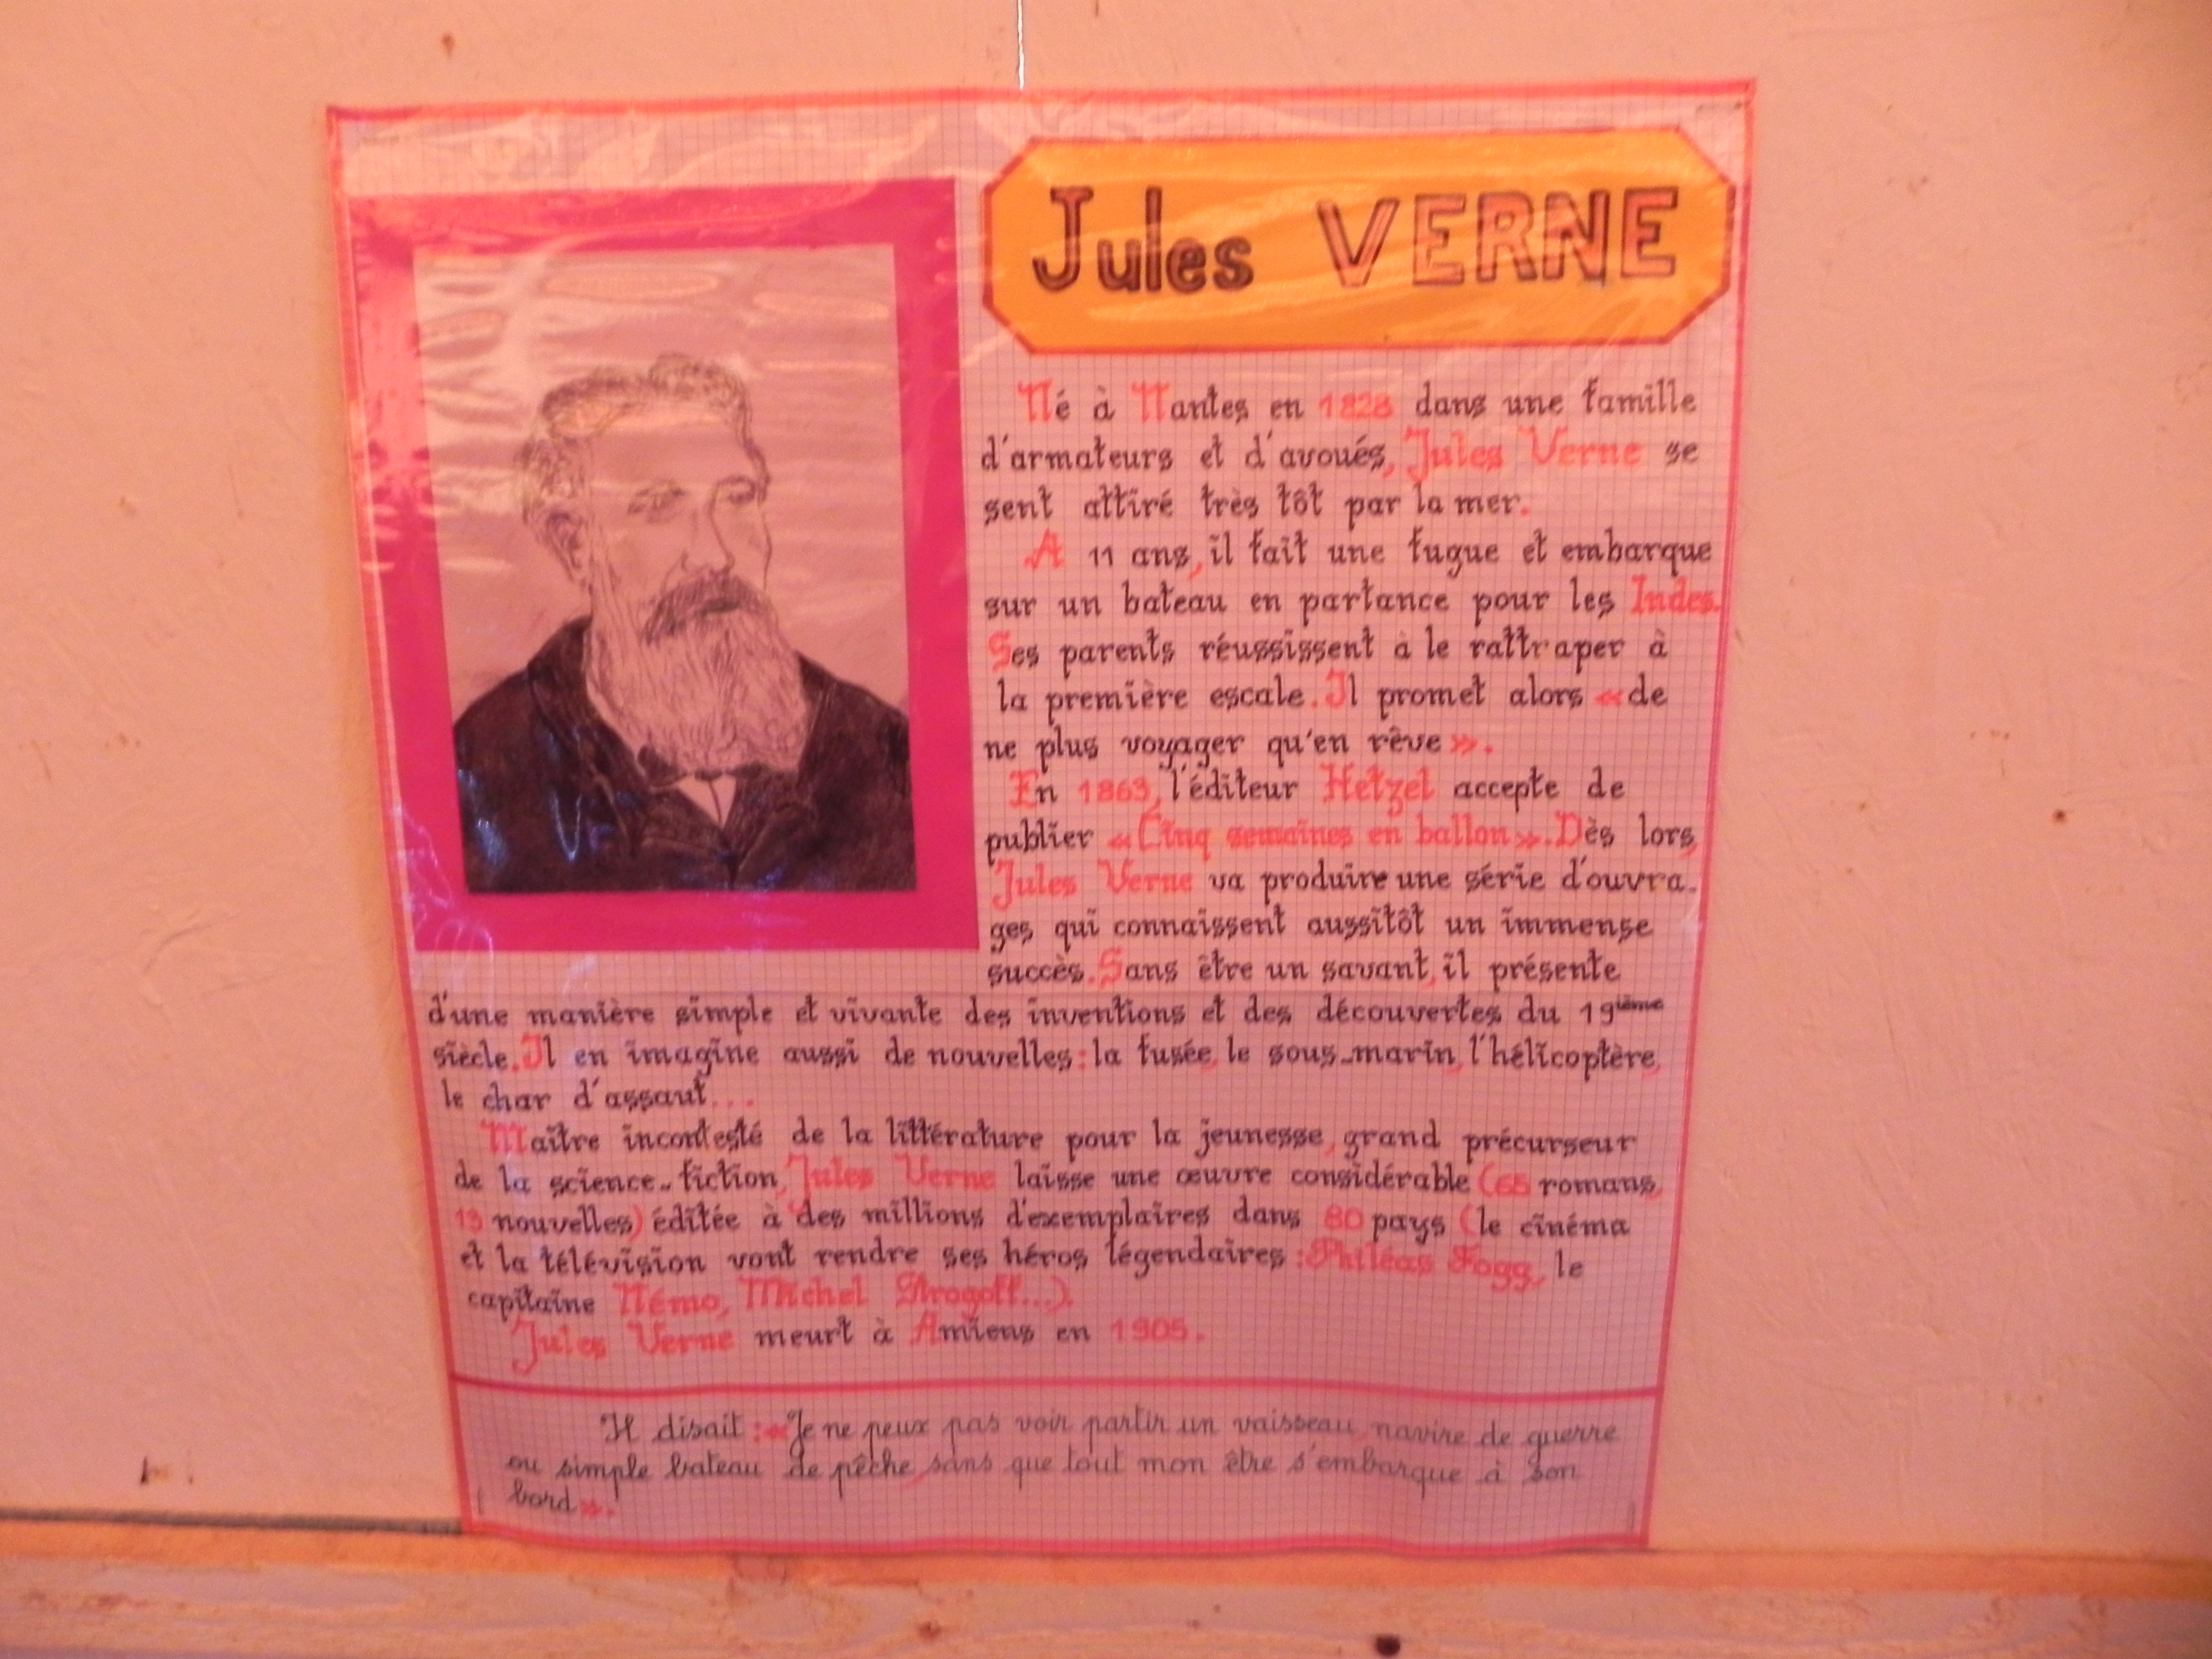 Jules VERNE
Né à Nantes en 1828 dans une famille
d'armateurs et d'avoués, Jules Verne se
sent attiré très tôt par la mer.
A 11 ans, il fait une fugue et embarque
sur un bateau en partance pour les Indes.
Ses parents réussissent à le rattraper à
la première escale. Il promet alors « de
ne plus voyager qu'en rêve ».
En 1863, l'éditeur Hetzel accepte de
publier « Cinq semaines en ballon ». Dès lors,
Jules Verne va produire une série d'ouvra-
ges qui connaissent aussitôt un immense
succès. Sans être un savant, il présente
d'une manière simple et vivante des inventions et des découvertes du 19ième
siècle. Il en imagine aussi de nouvelles : la fusée, le sous-marin, l'hélicoptère,
le char d'assaut...
Maître incontesté de la littérature pour la jeunesse, grand précurseur
de la science-fiction, Jules Verne laisse une œuvre considérable (65 romans,
13 nouvelles) éditée à des millions d'exemplaires dans 80 pays (le cinéma
et la télévision vont rendre ses héros légendaires : Philéas Fogg, le
capitaine Némo, Michel Strogoff...).
Jules Verne meurt à Amiens en 1905.
Il disait : « Je ne peux pas voir partir un vaisseau, navire de guerre
ou simple bateau de pêche, sans que tout mon être s'embarque à son
bord ».